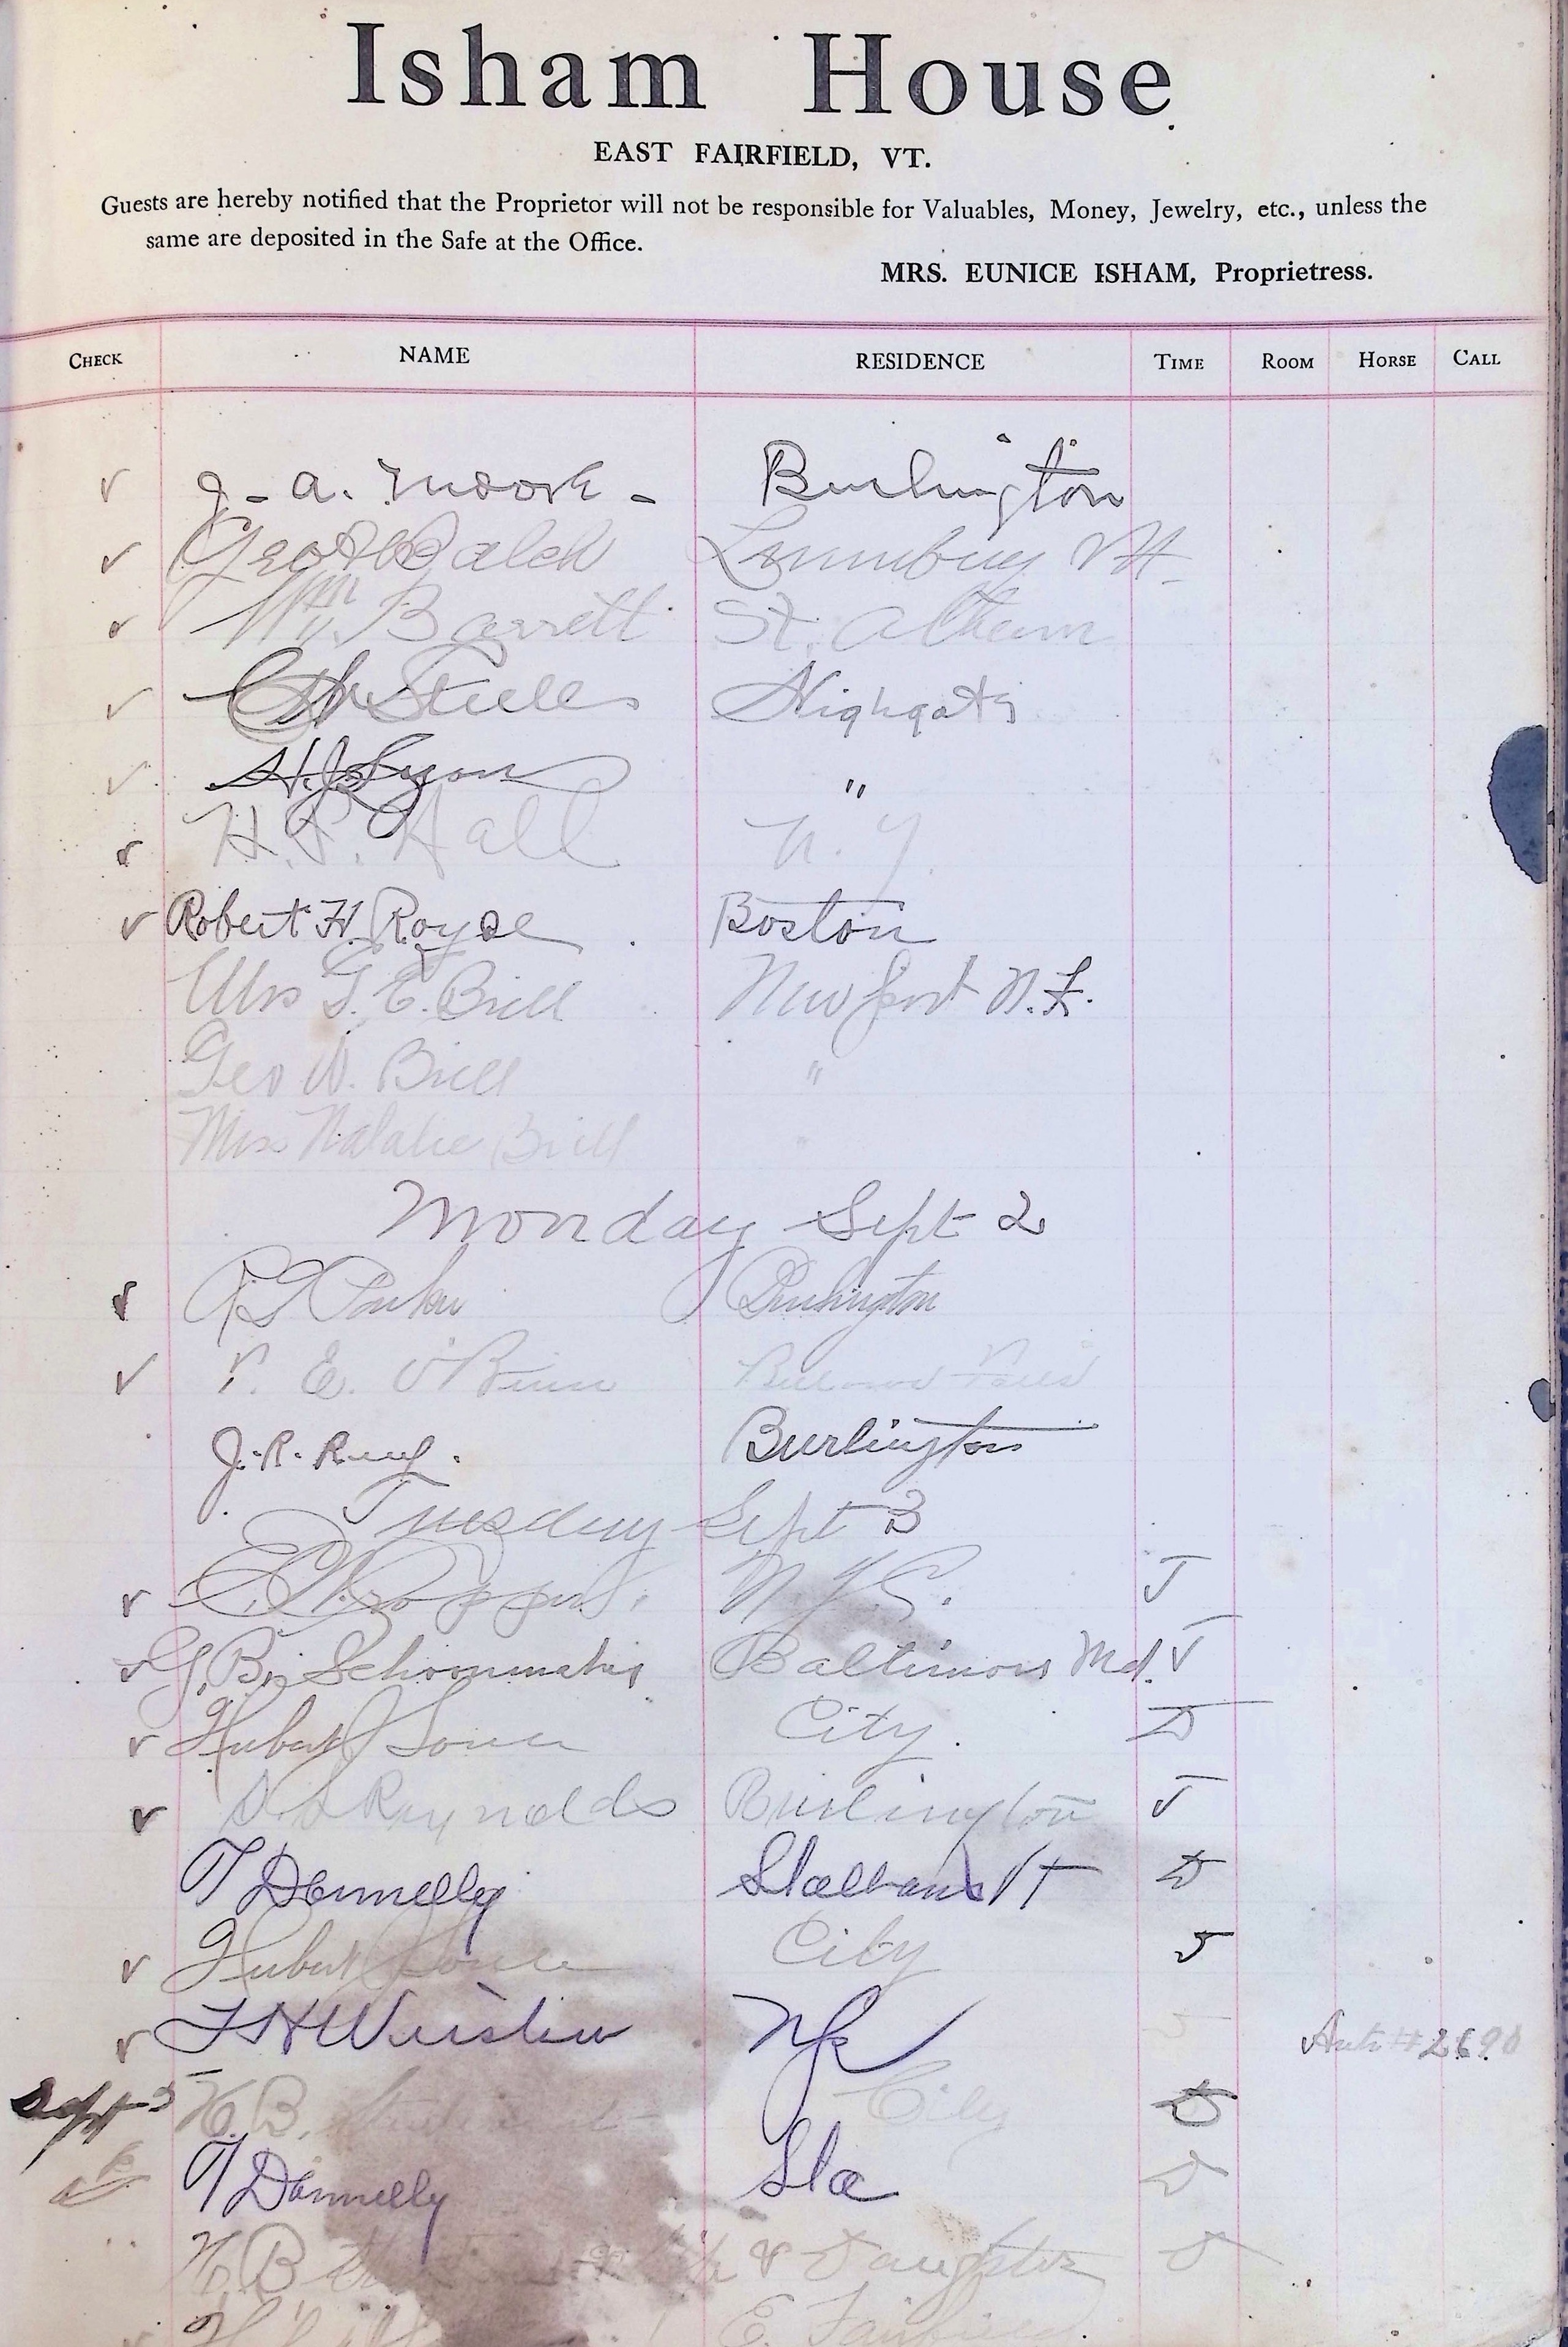 Isham House
EAST FAIRFIELD, VT.
Guests are hereby notified that the Proprietor will not be responsible for Valuables, Money, Jewelry, etc., unless the
same are deposited in the Safe at the Office.
MRS. EUNICE ISHAM, Proprietress.
CHECK NAME RESIDENCE TIME ROOM HORSE CALL
J - A. Moore - Burlington
Geo Balch Lunenburg Vt.
Wm. Barrett St. Albans
Highgate
H. J. Lyon "
H. P. Hall N. Y.
Robert H. Royce Boston
Mrs G. E. Brill Newport N.Y.
Geo W. Brill "
Miss Natalie Brill "
Monday Sept 2
Parker Burlington
P. E. O'Brien
J. R. Burlington
Tuesday Sept 3
N.Y.C. T
G. B. Schoonmaker Baltimore Md. T
Hubert Soule City. D
Reynolds Burlington T
T Donnelly St Albans Vt D
Hubert Soule City S
F H Winslow NY Auto #2690
Sept 3 H. B. City D
T Donnelly Sta D
H. B. & Daughter D
E. Fairfield